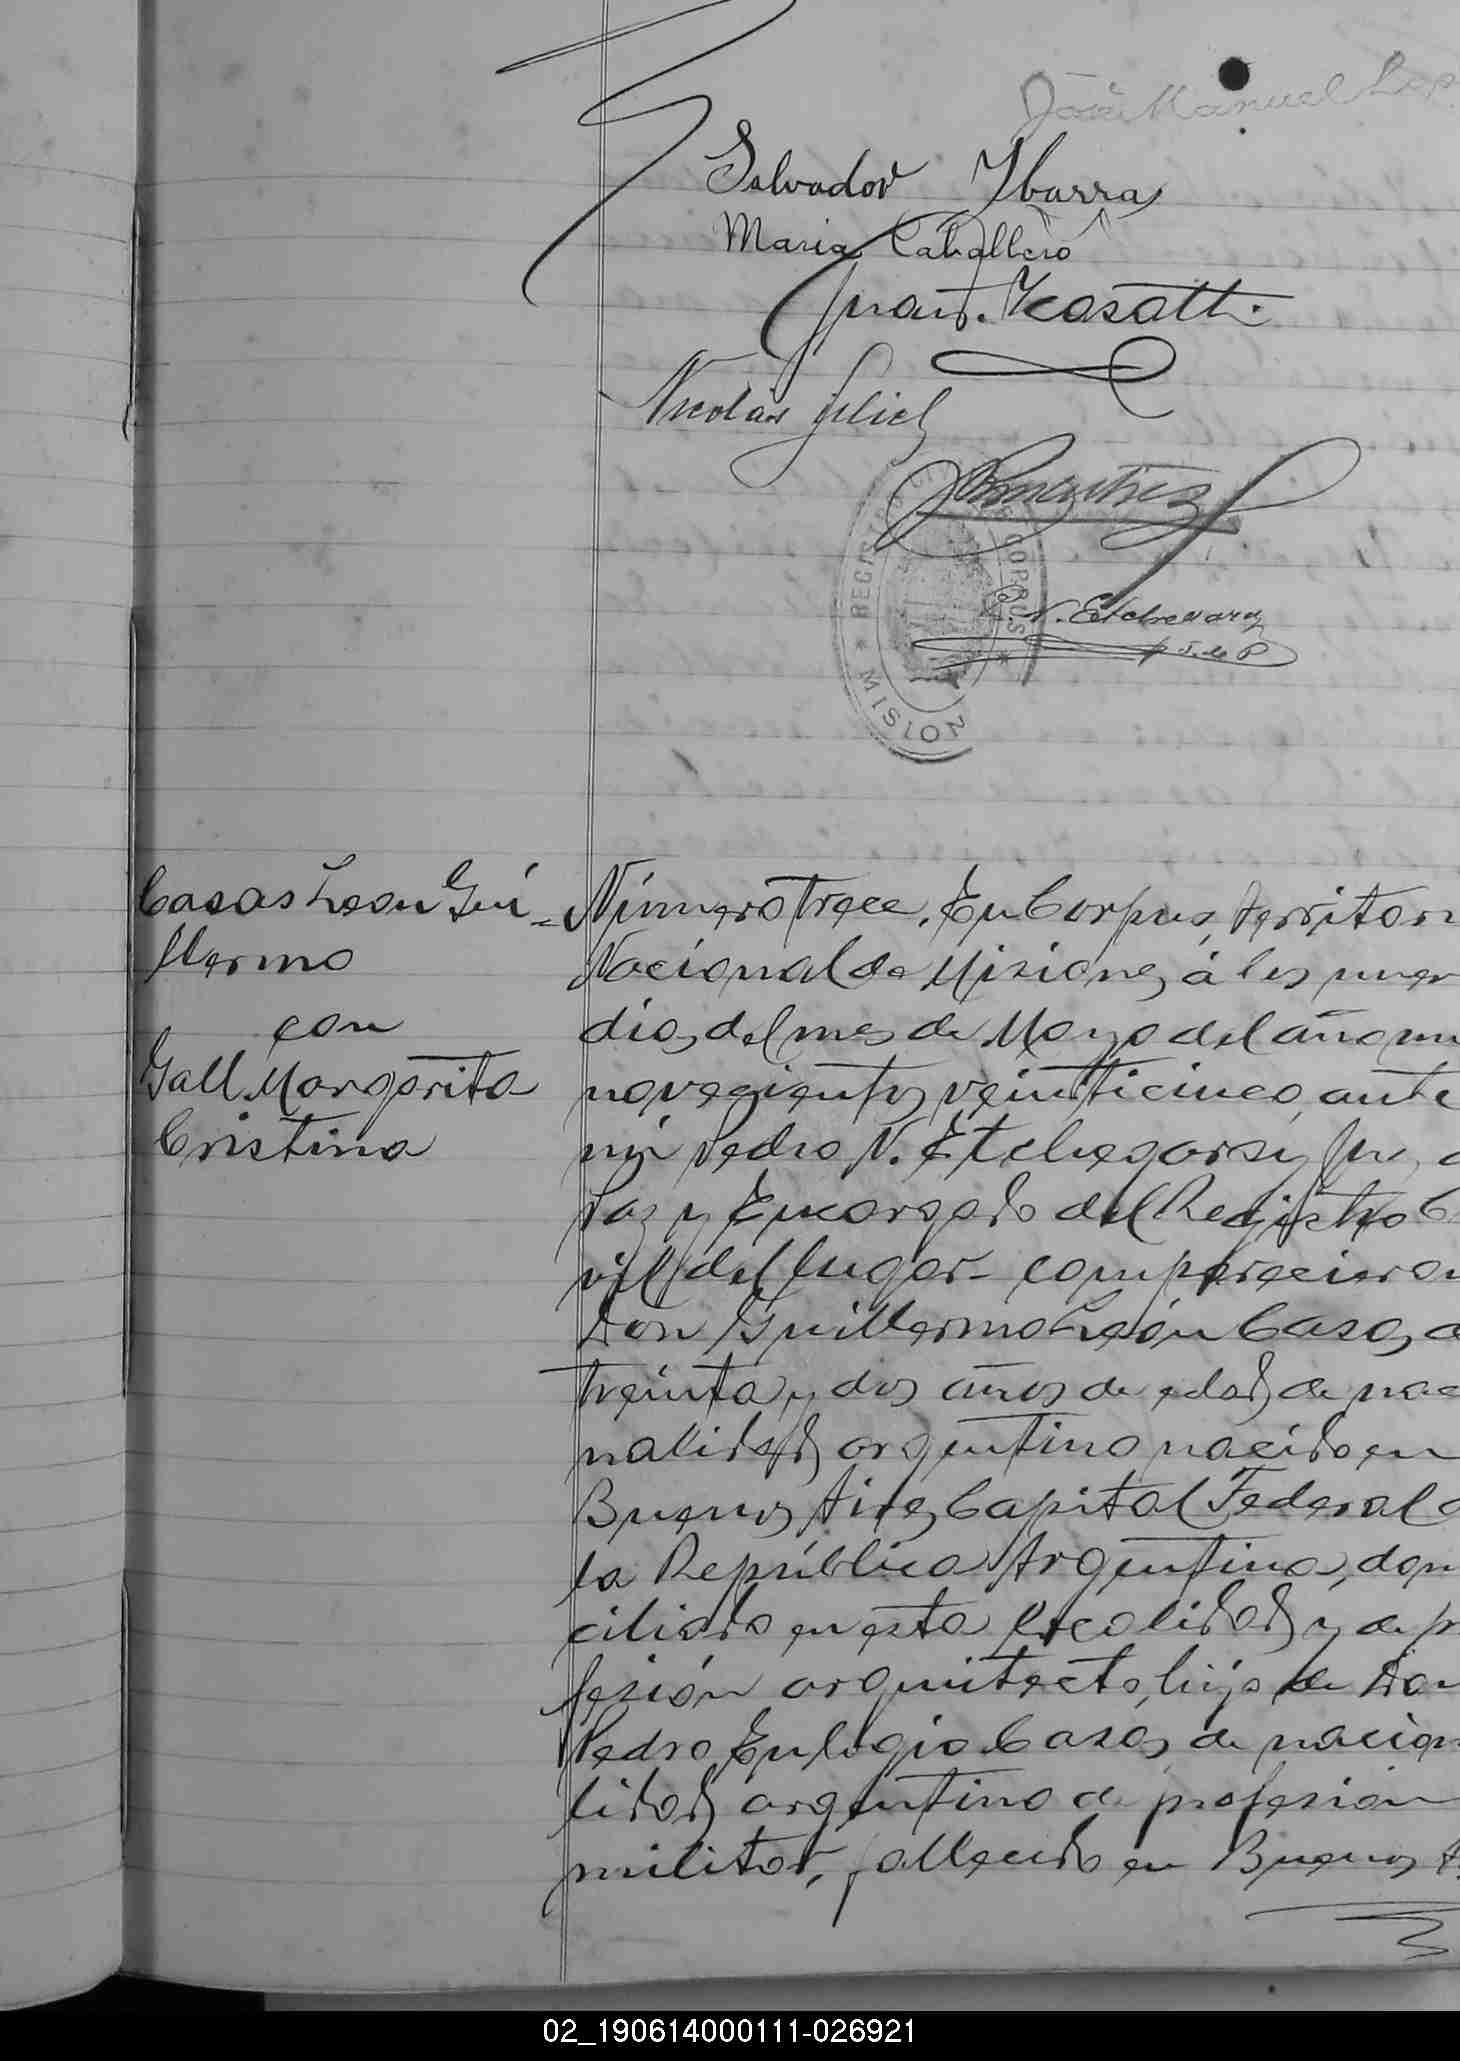 José Manuel Lop
Salvador Ybarra
Maria Caballero
Juan. Casatti
Nicolás
REGISTRO CIVIL CORPUS
MISION
N. Etchegaray
J. de P.
Casas Leon Gui
llermo
con
Gall Margarita
Cristina
Número trece. En Corpus, territori
Nacional de Misiones, á los nuev
dias del mes de Mayo del año mi
novecientos veinticinco, ante
mi Pedro N. Etchegaray Juez d
Paz y Encargado del Registro C
vil del lugar comparecieron
Don Guillermo León Casas, d
treinta y dos años de edad, de nac
nalidad argentino nacido en
Buenos Aires Capital Federal d
la República Argentina, dom
ciliado en esta localidad y de p
fesión arquitecto, hijo de Don
Pedro Eulogio Casas, de nacion
lidad argentino de profesión
militar, fallecido en Buenos A
02_190614000111-026921